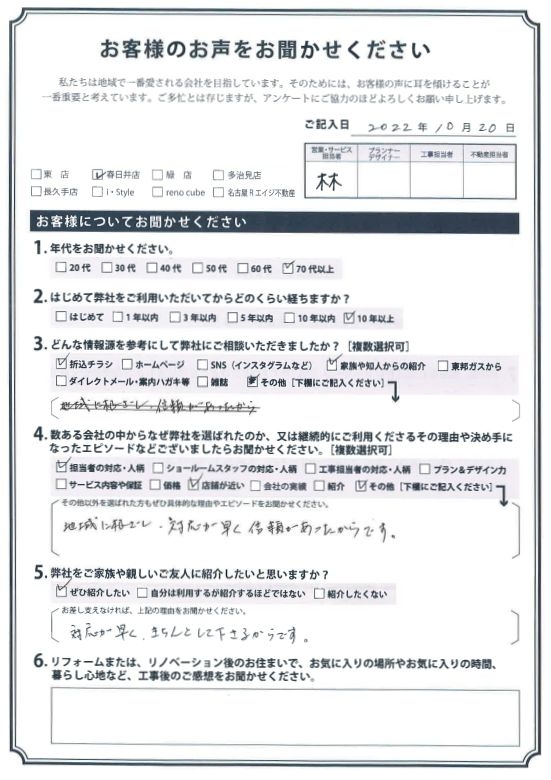 お客様のお声をお聞かせください
私たちは地域で一番愛される会社を目指しています。そのためには、お客様の声に耳を傾けることが
一番重要と考えています。ご多忙とは存じますが、アンケートにご協力のほどよろしくお願い申し上げます。
ご記入日 2022年10月20日
営業・サービス担当者 プランナーデザイナー 工事担当者 不動産担当者
林
□東 店 ☑春日井店 □緑 店 □多治見店
□長久手店 □i・Style □reno cube □名古屋Rエイジ不動産
お客様についてお聞かせください
1. 年代をお聞かせください。
□20代 □30代 □40代 □50代 □60代 ☑70代以上
2. はじめて弊社をご利用いただいてからどのくらい経ちますか？
□はじめて □1年以内 □3年以内 □5年以内 □10年以内 ☑10年以上
3. どんな情報源を参考にして弊社にご相談いただきましたか？［複数選択可］
☑折込チラシ □ホームページ □SNS（インスタグラムなど） ☑家族や知人からの紹介 □東邦ガスから
□ダイレクトメール・案内ハガキ等 □雑誌 ☑その他［下欄にご記入ください］
地域に根ざし、信頼があったから
4. 数ある会社の中からなぜ弊社を選ばれたのか、又は継続的にご利用くださるその理由や決め手に
なったエピソードなどございましたらお聞かせください。［複数選択可］
☑担当者の対応・人柄 □ショールームスタッフの対応・人柄 □工事担当者の対応・人柄 □プラン＆デザイン力
□サービス内容や保証 □価格 ☑店舗が近い □会社の実績 □紹介 ☑その他［下欄にご記入ください］
その他以外を選ばれた方もぜひ具体的な理由やエピソードをお聞かせください。
地域に根ざし、対応が早く信頼があったからです。
5. 弊社をご家族や親しいご友人に紹介したいと思いますか？
☑ぜひ紹介したい □自分は利用するが紹介するほどではない □紹介したくない
お差し支えなければ、上記の理由をお聞かせください。
対応が早く、きちんとして下さるからです。
6. リフォームまたは、リノベーション後のお住まいで、お気に入りの場所やお気に入りの時間、
暮らし心地など、工事後のご感想をお聞かせください。